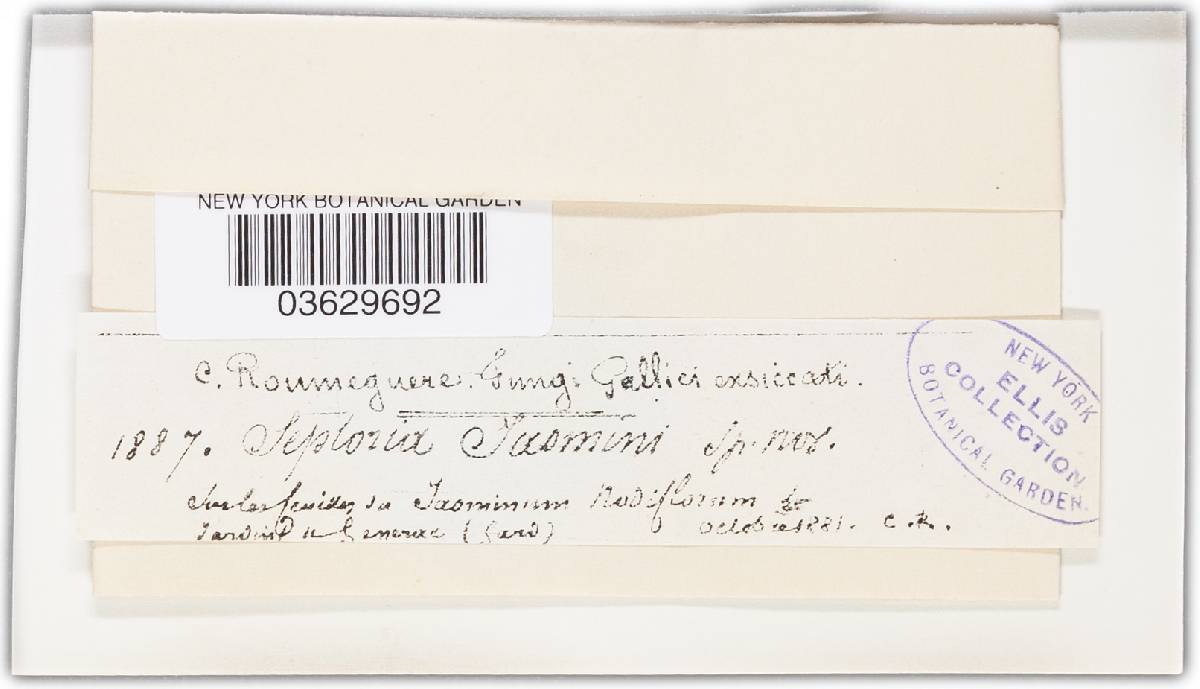 NEW YORK BOTANICAL GARDEN
03629692
C. Roumeguere. Fungi Gallici exsiccati.
1887. Septoria Jasmini Sp. nov.
Sur les feuilles du Jasminum Nudiflorum
Jardin de Generac (Gard) Octobre 1881. C. R.
NEW YORK
ELLIS
COLLECTION
BOTANICAL GARDEN.